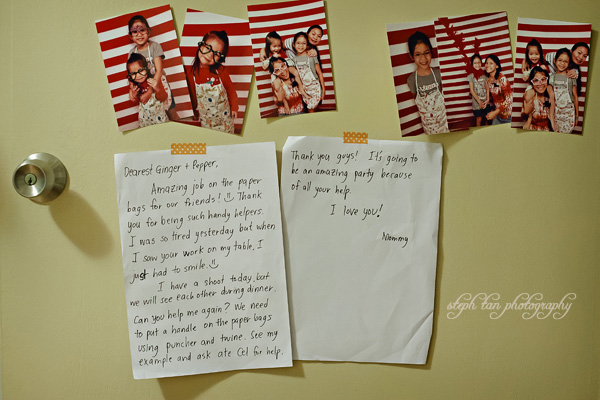 Dearest Ginger + Pepper,
Amazing job on the paper
bags for our friends! Thank
you for being such handy helpers.
I was so tired yesterday but when
I saw your work on my table, I
just had to smile.
I have a shoot today, but
we will see each other during dinner.
Can you help me again? We need
to put a handle on the paper bags
using puncher and twine. See my
example and ask ate Cel for help.
Thank you guys! It's going to
be an amazing party because
of all your help.
I love you!
Mommy
steph tan photography